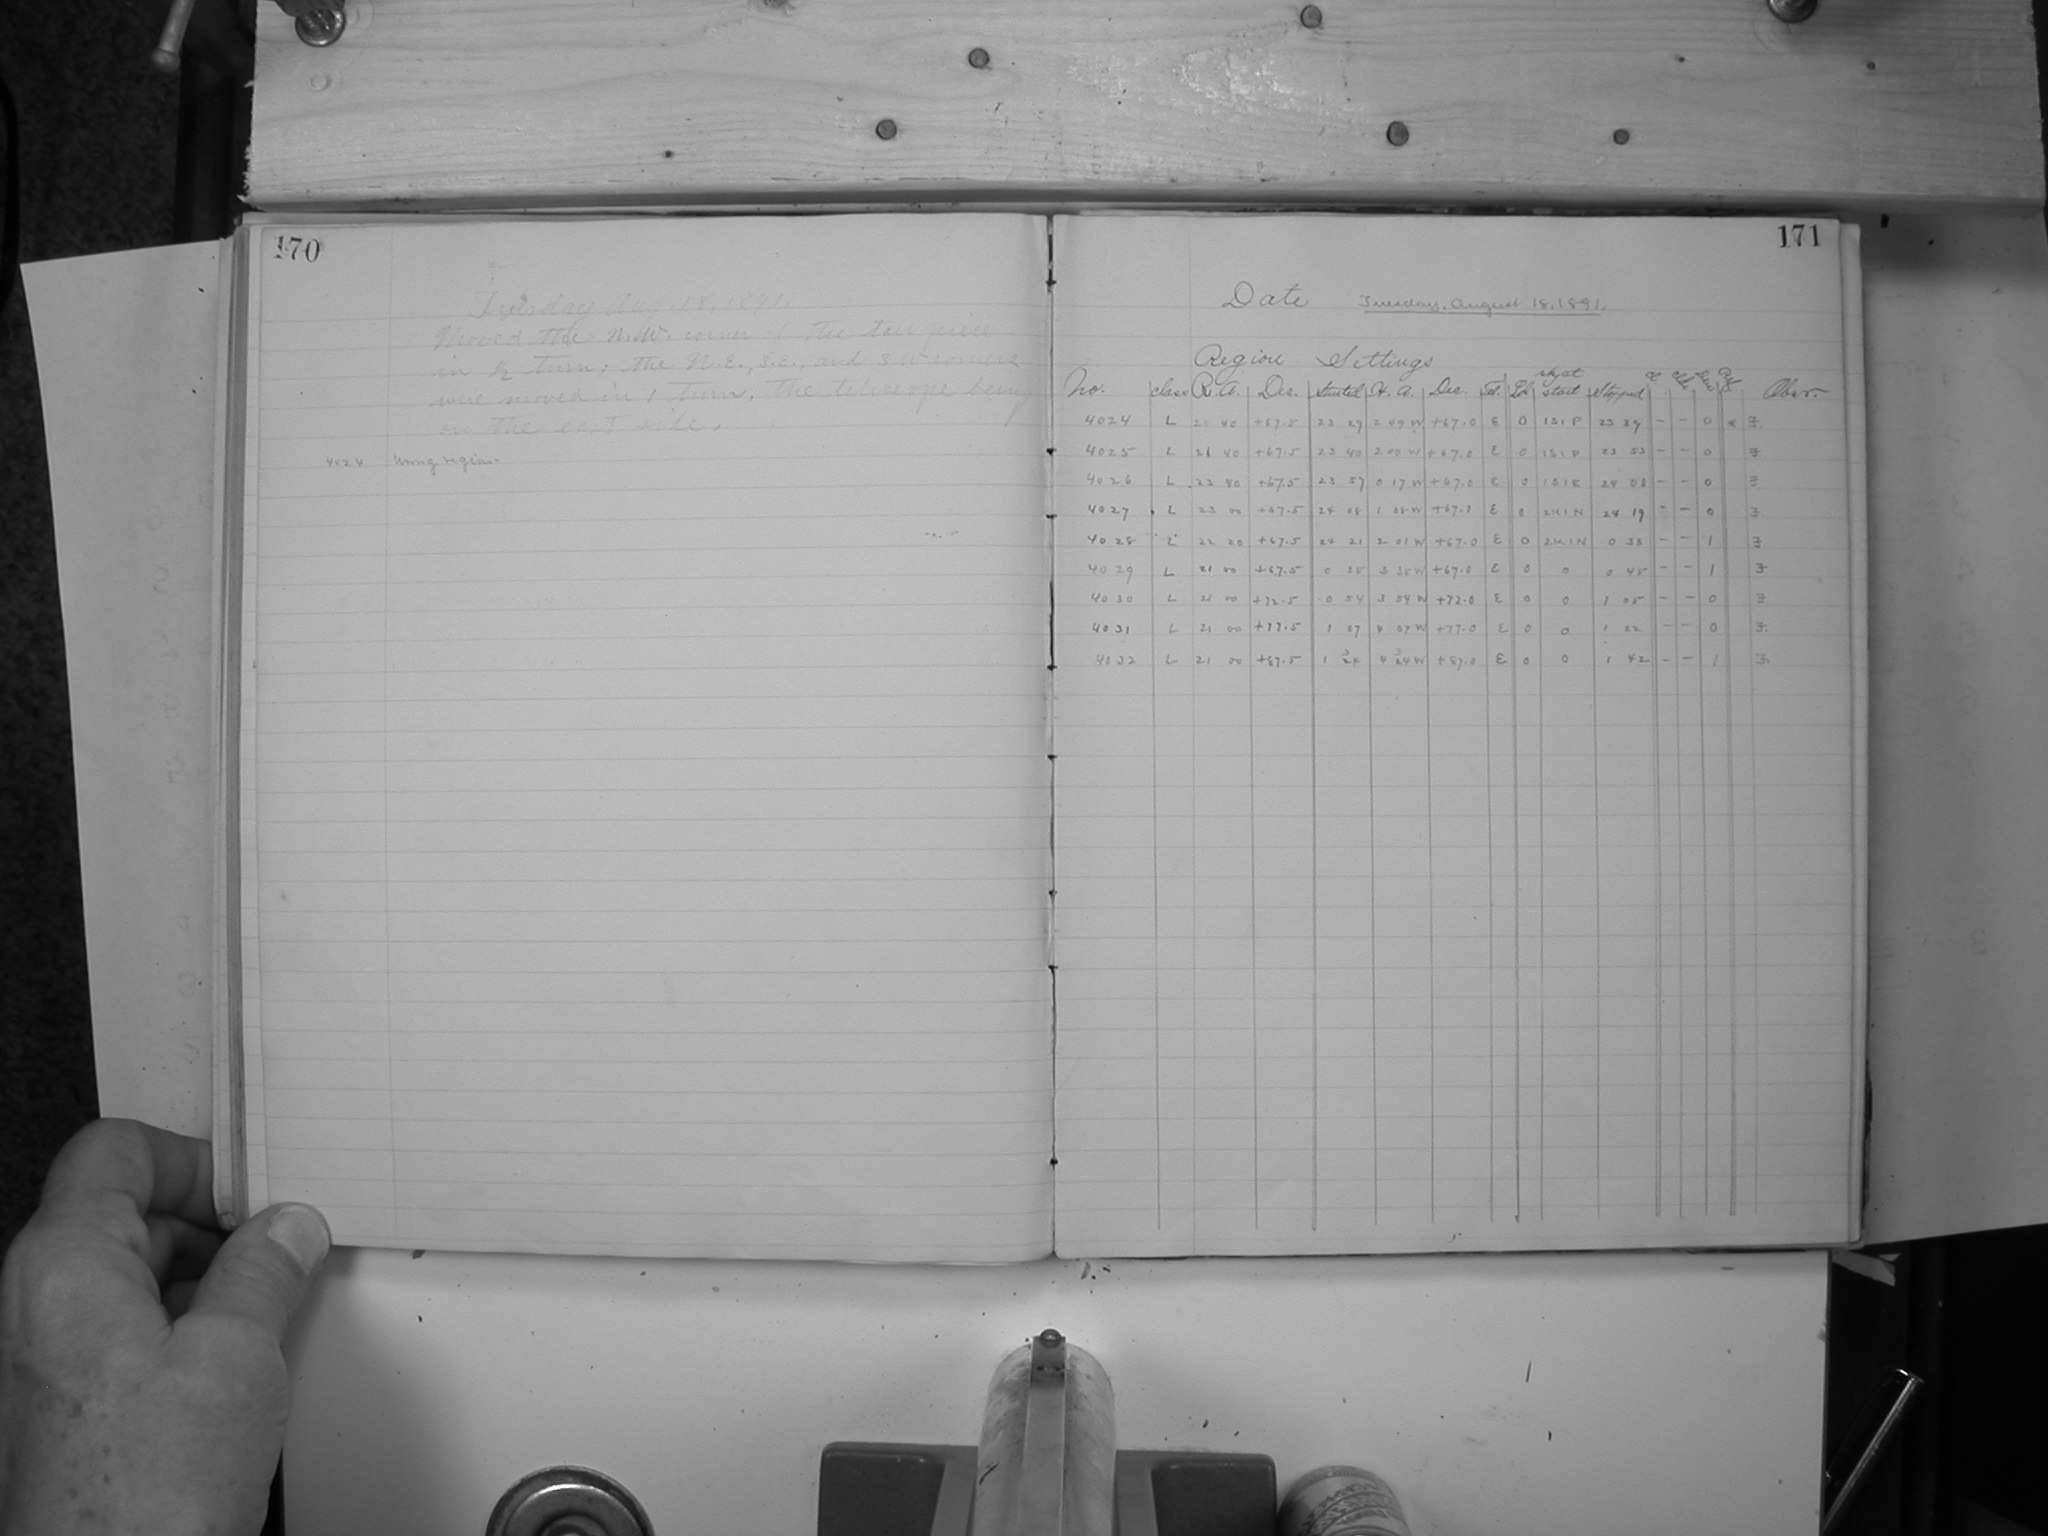 170
Tuesday Aug. 18, 1891.
Moved the N.W. corner of the tail piece
in ½ turn; the N.E., S.E., and S W corners
were moved in 1 turn, the telescope being
on the east side.
4024 Wrong region.
171
Date Tuesday, August 18, 1891.
Region Settings
No. Class R. A. Dec. Started H. A. Dec. Tel. sky at start Stopped Obsr.
4024 L 40 +67.5 23 29 2 49 W +67.0 E 0 1S1P 23 39 - - 0 * F.
4025 L 21 40 +67.5 23 40 2 00 W +67.0 E 0 1S1P 23 53 - - 0 F
4026 L 23 40 +67.5 23 57 0 17 W +67.0 E 0 24 08 - - 0 F
4027 L 23 00 +67.5 24 08 1 08 W E 0 2K1N 24 19 - - 0 F
4028 L 22 20 +67.5 24 21 2 01 W +67.0 E 0 2K1N 0 33 - - 1 F
4029 L 21 00 +67.5 0 35 3 35 W +67.0 E 0 0 0 45 - - 1 F
4030 L 21 00 +72.5 0 54 3 54 W +72.0 E 0 0 1 05 - - 0 F
4031 L 21 00 +77.5 1 07 4 07 W +77.0 E 0 0 1 22 - - 0 F.
4032 L 21 00 +87.5 1 24 4 24 W +87.0 E 0 0 1 42 - - 1 F.